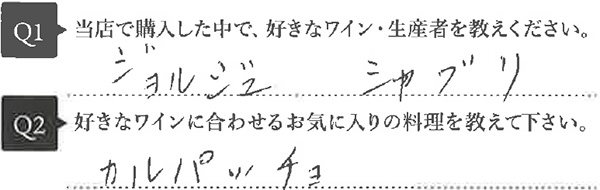 Q1 当店で購入した中で、好きなワイン・生産者を教えください。
ジョルジュ シャブリ
Q2 好きなワインに合わせるお気に入りの料理を教えて下さい。
カルパッチョ